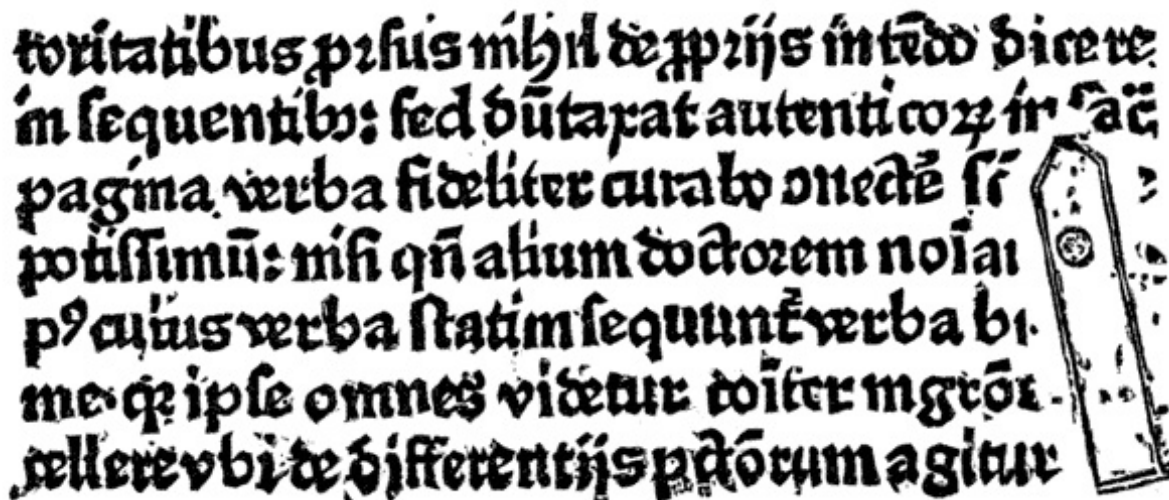 toritatibus prsus nihil de ꝓprijs intēdo dicere
in sequentibꝰ: sed dūtaxat autenticoꝝ in sac̄
pagina verba fideliter curabo ɔnectē
potissimū: nisi qn̄ alium doctorem
pꝰ cuius verba statim sequunt̄ verba
me. qꝛ ipse omnes videtur
cellere vbi de differentijs agitur